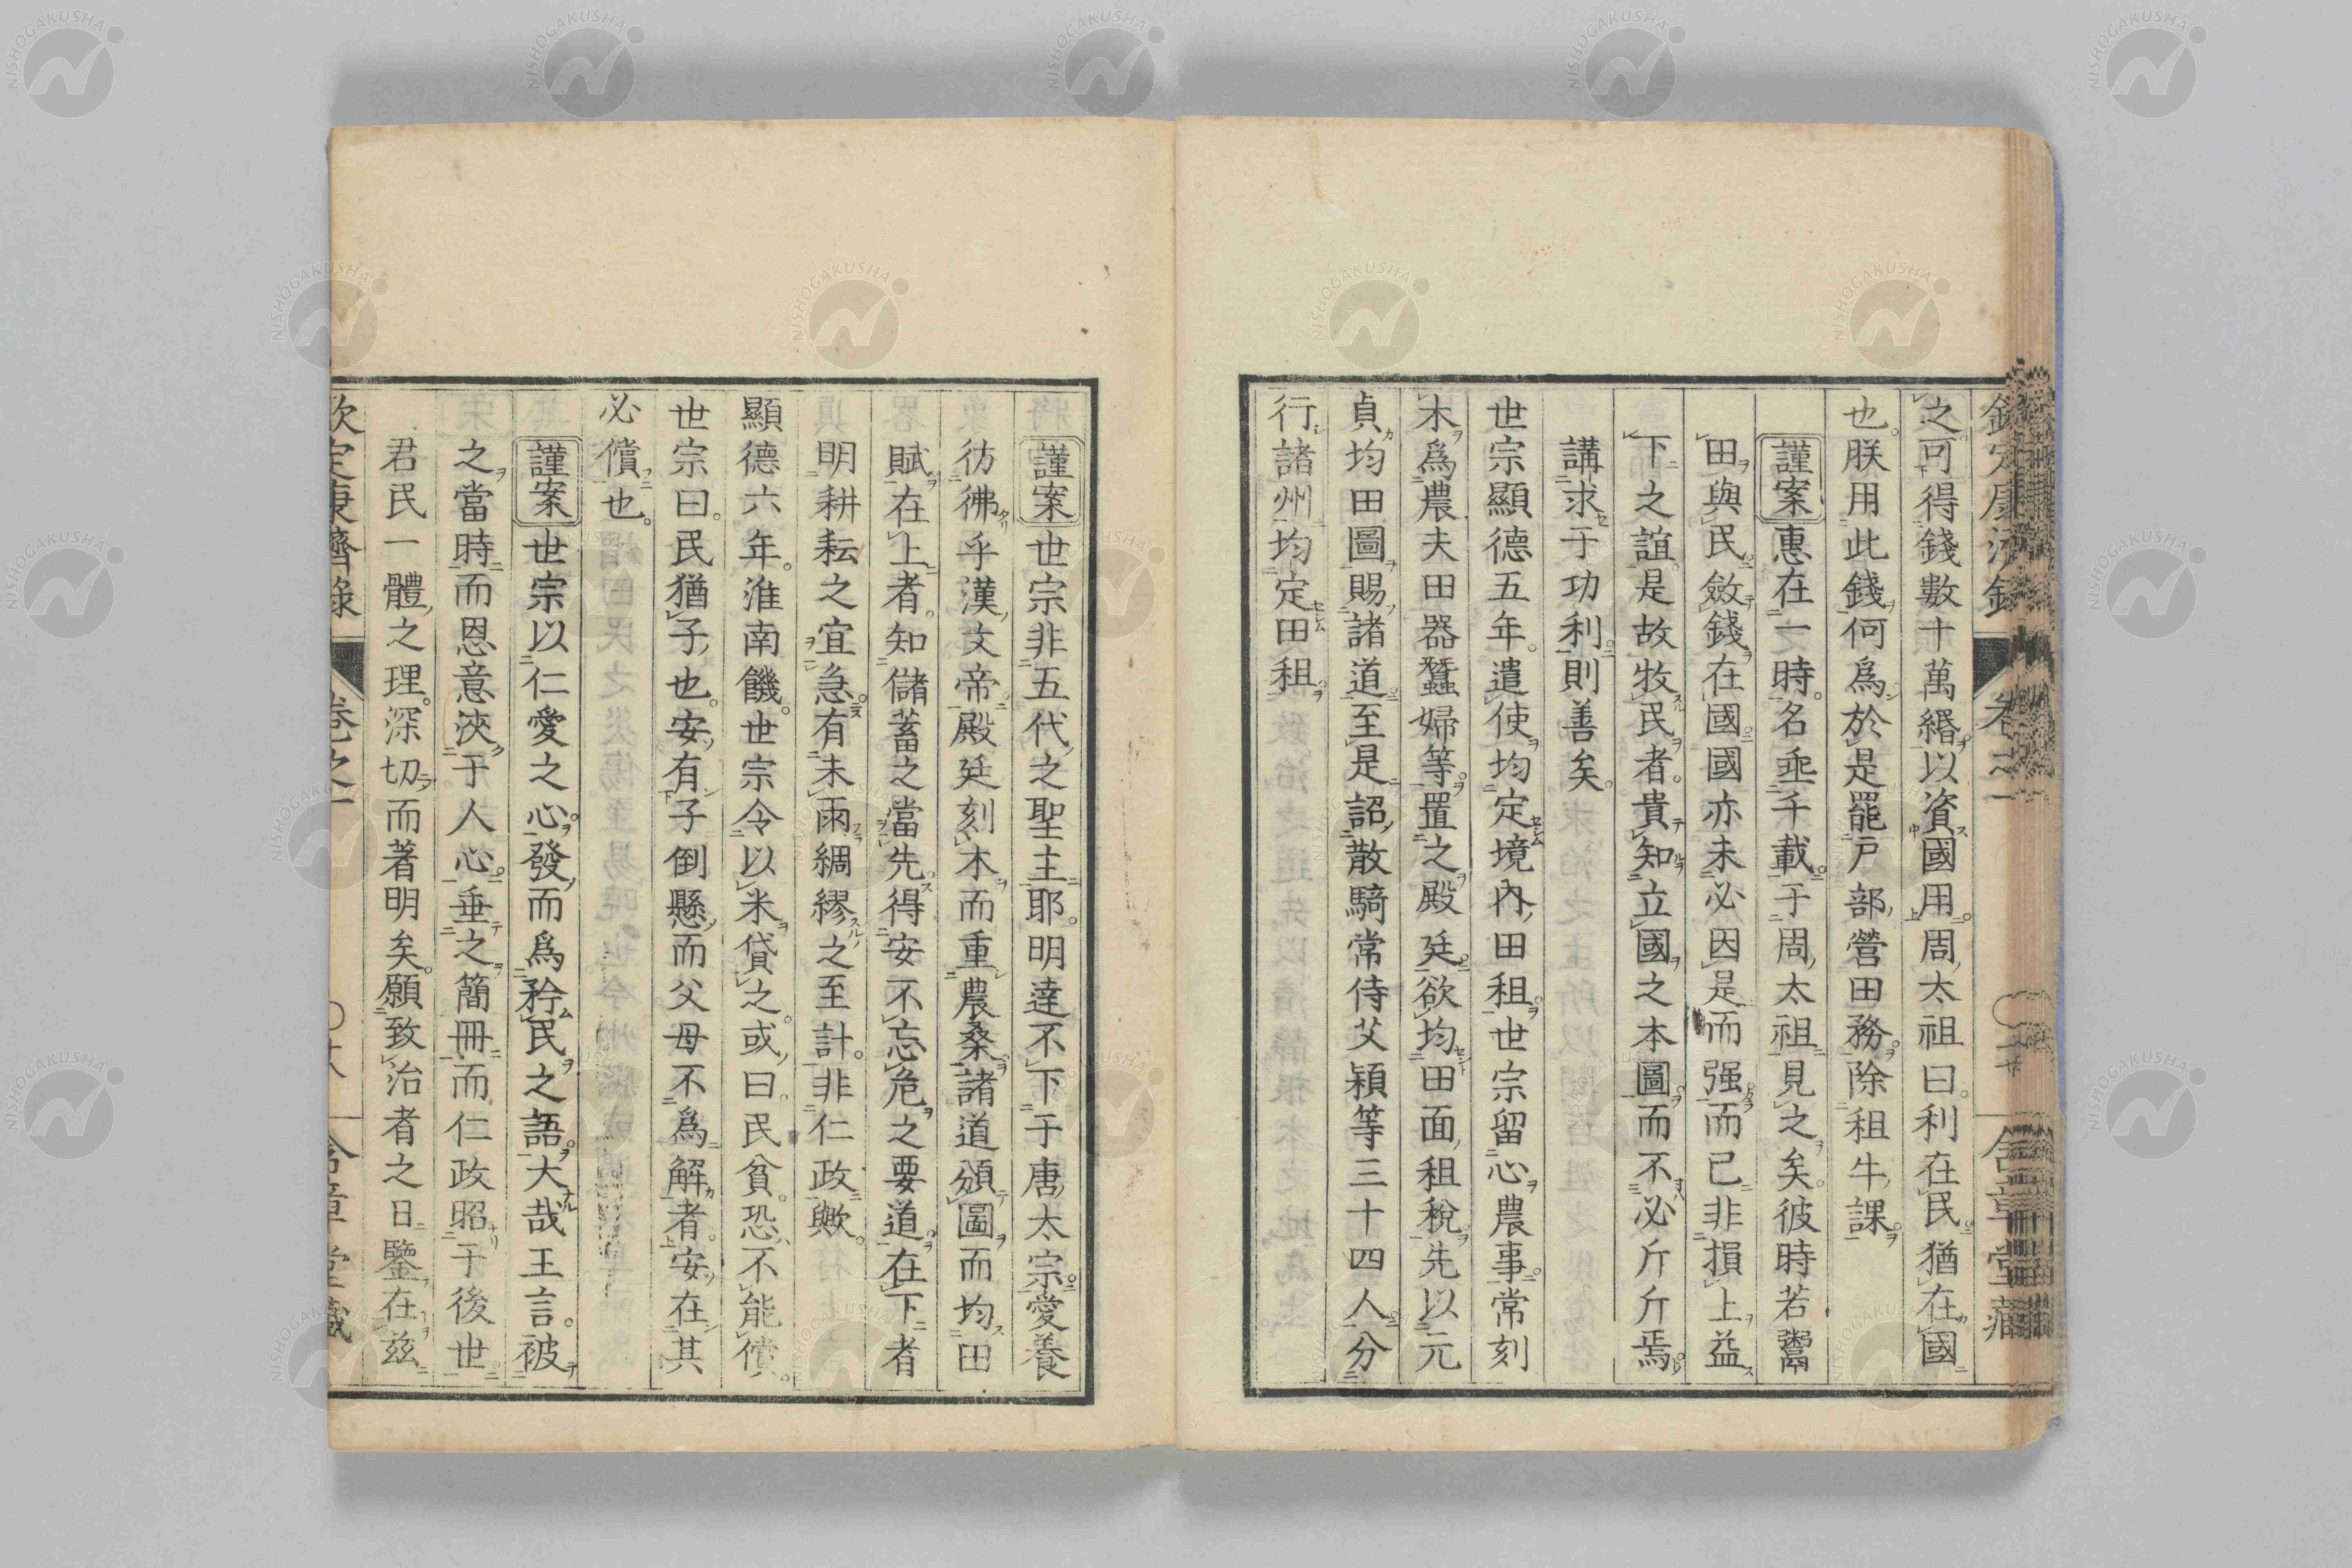 之可得錢數十萬緡以資國用周太祖曰利在民猶在國
也朕用此錢何爲於是罷戸部營田務除租牛課
謹案惠在一時名垂千載于周太祖見之矣彼時若鬻
田與民斂錢在國國亦未必因是而强而已非損上益
下之誼是故牧民者貴知立國之本圖而不必斤斤焉
講求于功利則善矣
世宗顯德五年遣使均定境內田租世宗留心農事常刻
木爲農夫田器蠶婦等置之殿廷欲均田面租稅先以元
貞均田圖賜諸道至是詔散騎常侍艾穎等三十四人分
行諸州均定田租
謹案世宗非五代之聖主耶明達不下于唐太宗愛養
彷彿乎漢文帝殿廷刻木而重農桑諸道頒圖而均田
賦在上者知儲蓄之當先得安不忘危之要道在下者
明耕耘之宜急有未雨綢繆之至計非仁政歟
顯德六年淮南饑世宗令以米貸之或曰民貧恐不能償
世宗曰民猶子也安有子倒懸而父母不爲解者安在其
必償也
謹案世宗以仁愛之心發而爲矜民之語大哉王言被
之當時而恩意浹于人心垂之簡冊而仁政昭于後世
君民一體之理深切而著明矣願致治者之日鑒在茲
欽定康濟錄 卷之一 含章堂藏
NISHOGAKUSHA